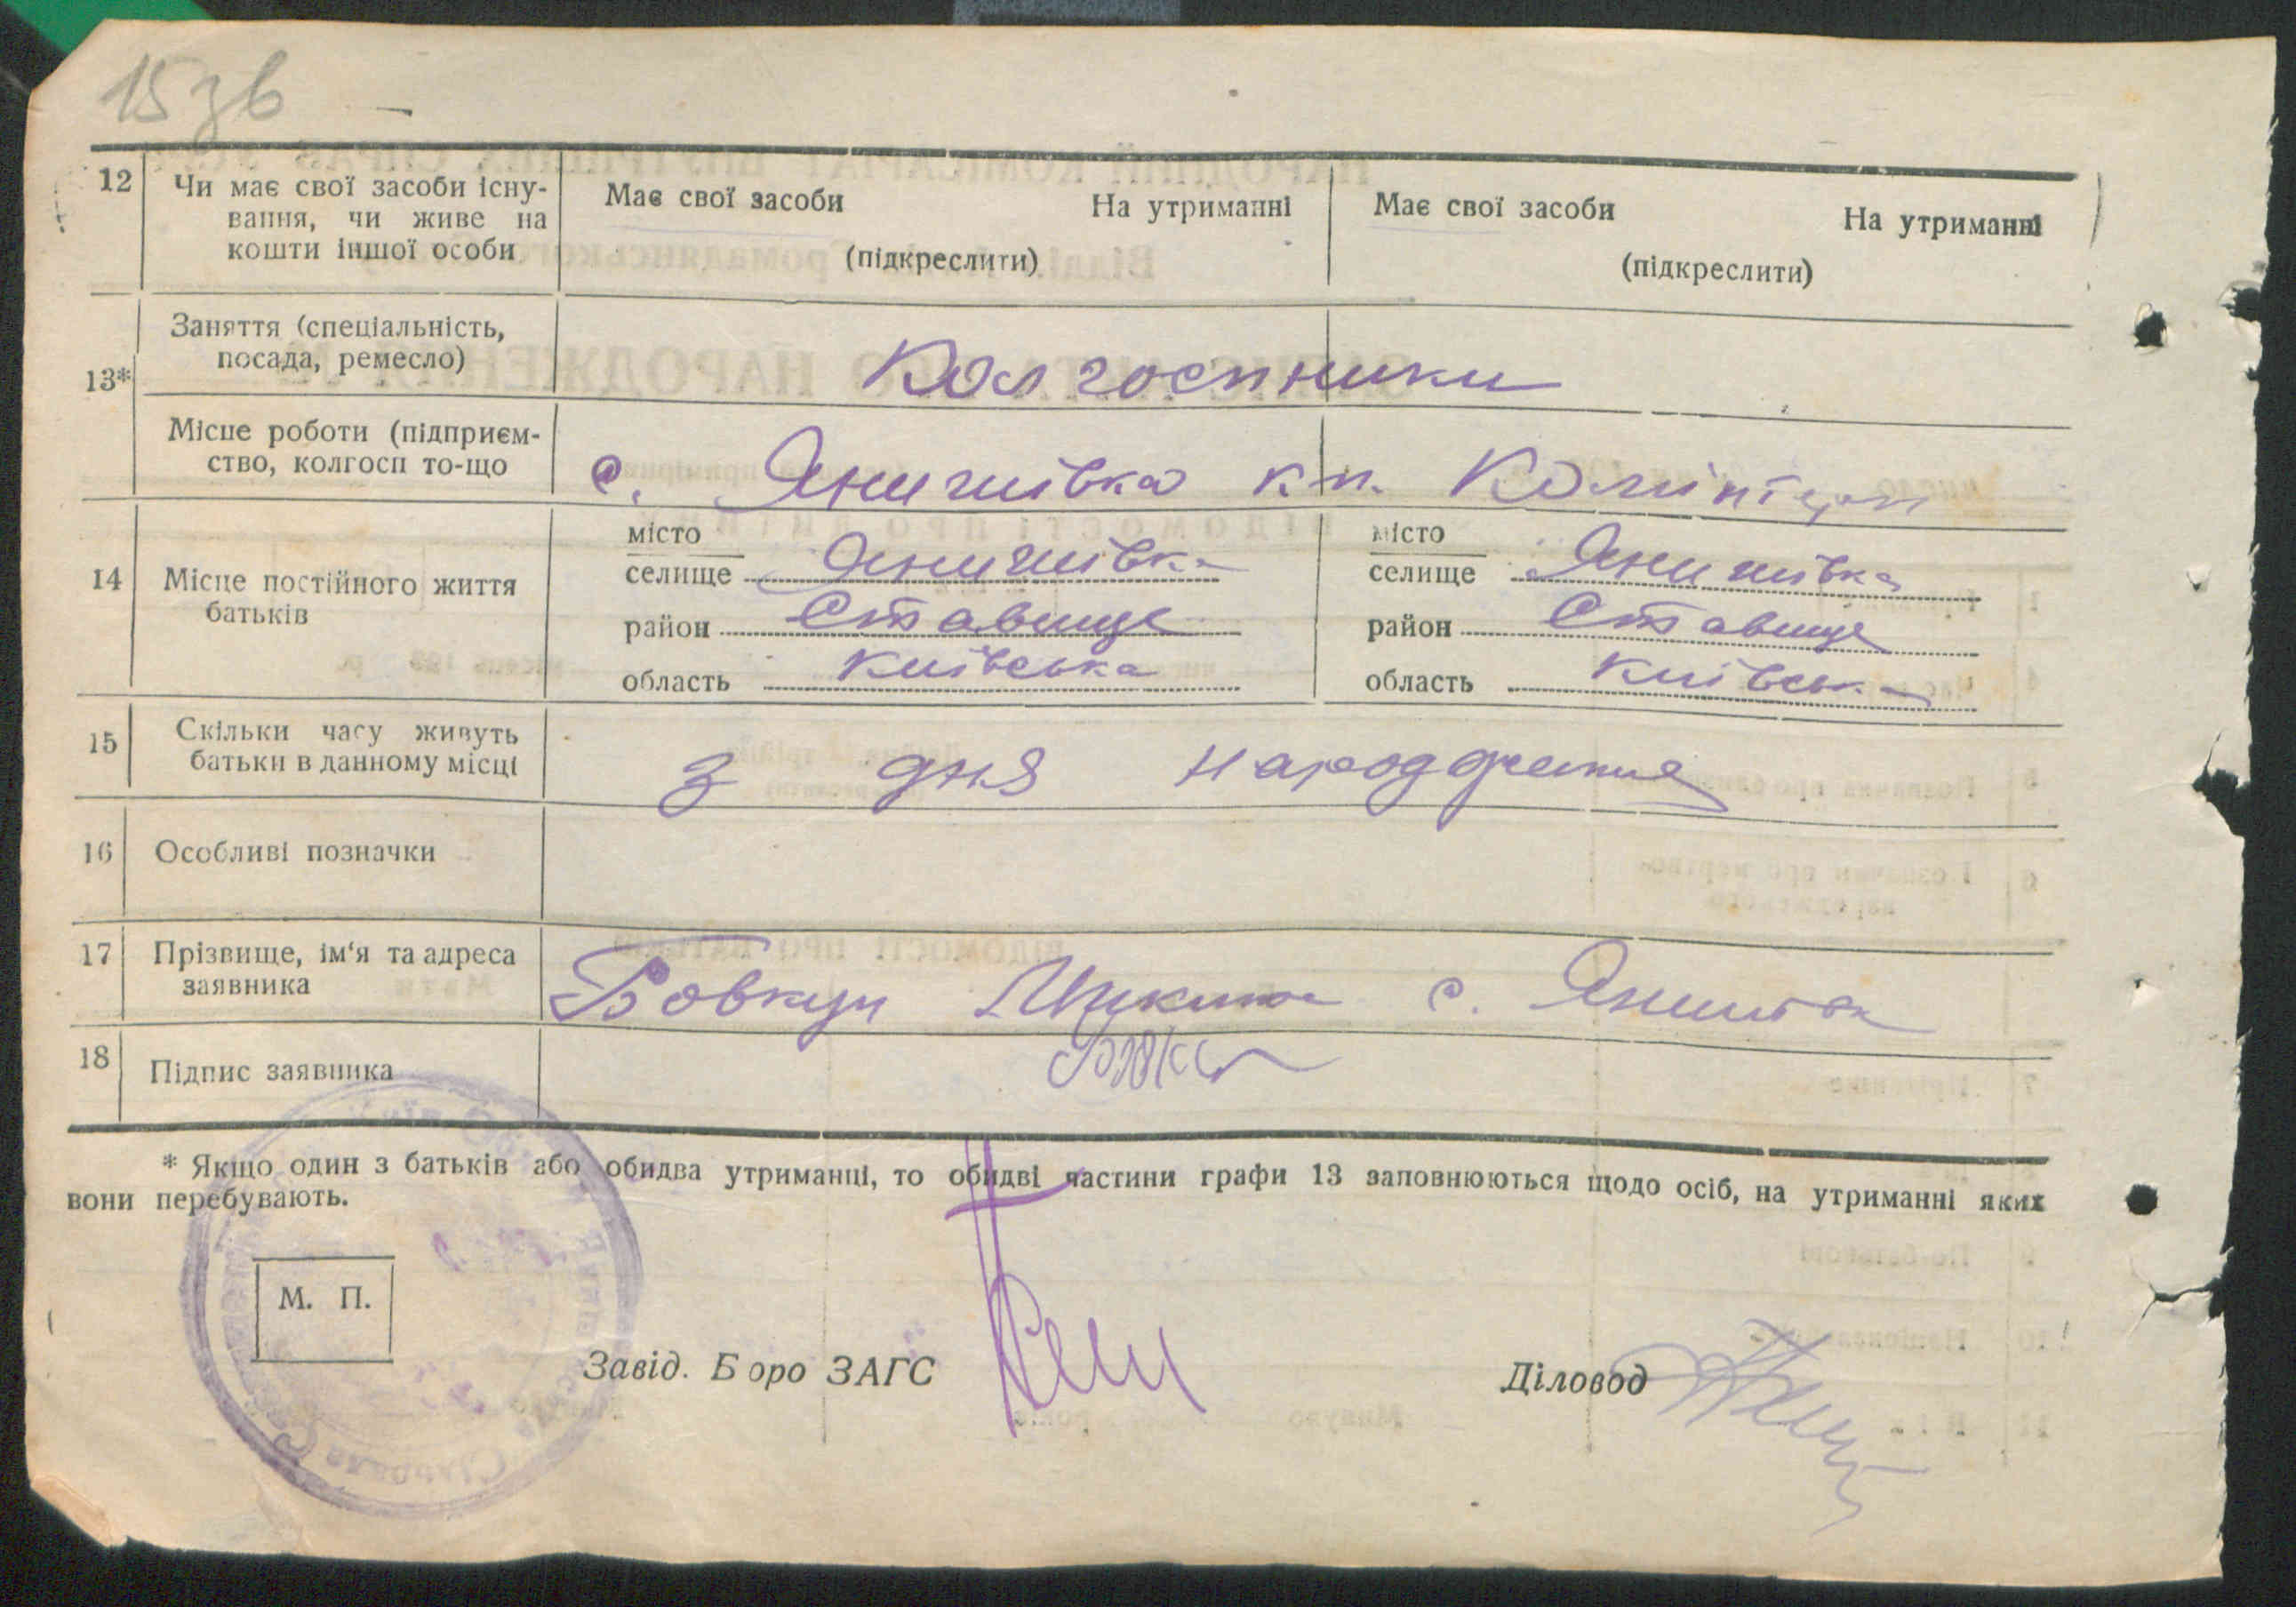 15зв
12 Чи має свої засоби існу-
вання, чи живе на
кошти іншої особи
Має свої засоби На утриманні
(підкреслити)
Має свої засоби На утриманні
(підкреслити)
13*
Заняття (спеціальність,
посада, ремесло)
Колгоспники
Місце роботи (підприєм-
ство, колгосп то-що
с. Янишівка к п. Комінтерн
14 Місце постійного життя
батьків
місто
селище Янишівка
район Ставище
область Київська
місто
селище Янишівка
район Ставище
область Київська
15 Скільки часу живуть
батьки в данному місці
з дня народження
16 Особливі позначки
17 Прізвище, ім'я та адреса
заявника
Бовкун Микита с.
18 Підпис заявника
* Якщо один з батьків або обидва утриманці, то обидві частини графи 13 заповнюються щодо осіб, на утриманні яких
вони перебувають.
М. П.
Завід. Бюро ЗАГС
Діловод